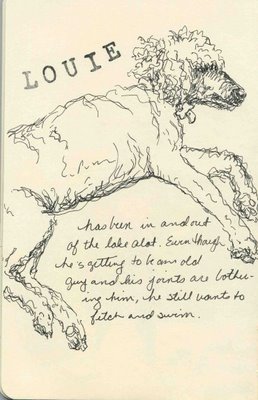 LOUIE
has been in and out
of the lake alot. Even though
he's getting to be an old
guy and his joints are bother-
ing him, he still wants to
fetch and swim.